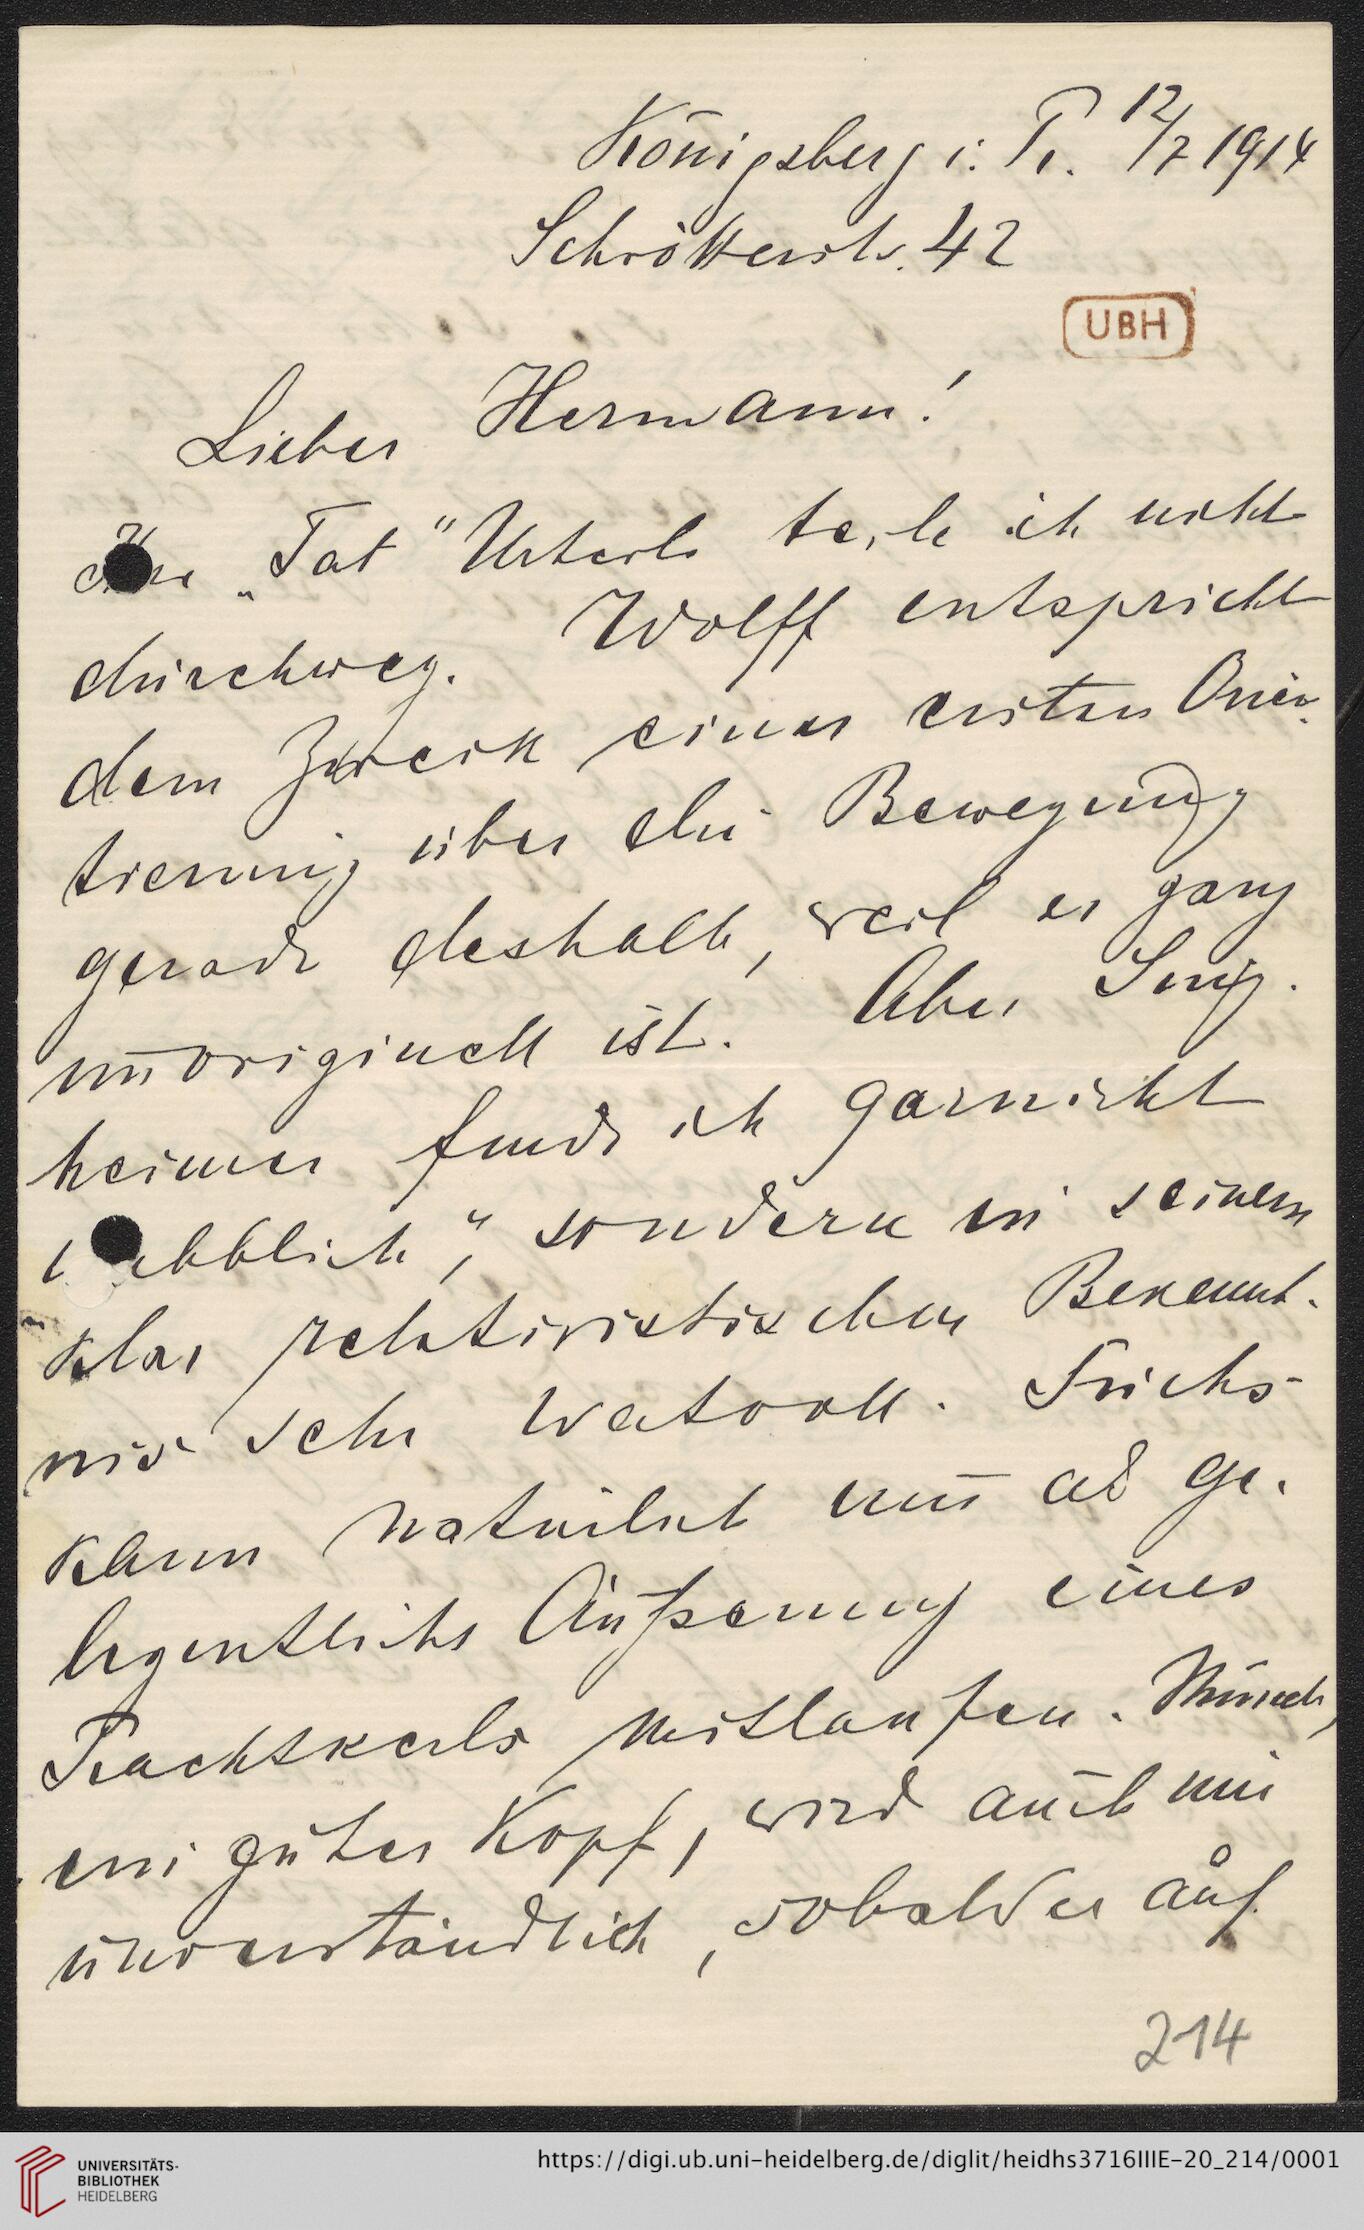 Königsberg i. Pr. 12/7 1914
Schrötterstr. 42
UBH
Lieber Hermann!
Ihre „Tat" Urteile teile ich nicht
durchweg. Wolff entspricht
dem Zweck einer ersten Orien-
tierung über die Bewegung
gerade deshalb, weil er ganz
unoriginell ist. Aber Sing-
heimer finde ich garnicht
sondern in seinem
klar relativistischen Bekennt-
nis sehr wertvoll. Fuchs
kann natürlich nur als ge-
legentliche Äußerung eines
Prachtkerls mitlaufen. Münch,
ein guter Kopf, wird auch mir
unverständlich, sobald er auf
214
UNIVERSITÄTS-
BIBLIOTHEK
HEIDELBERG
https://digi.ub.uni-heidelberg.de/diglit/heidhs3716IIIE-20_214/0001